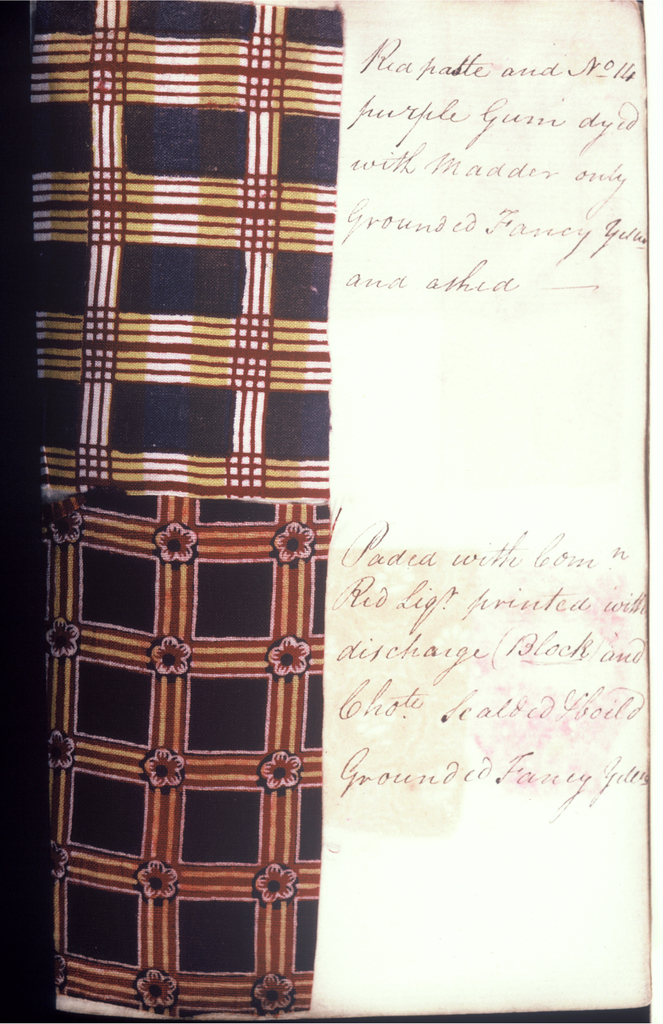 Red paste and No 14
purple Gum dyed
with Madder only
Grounded Fancy Yellow
and ashed —
Paded with Com n
Red Liqr. printed with
discharge (Block) and
Chote. Scalded & boild
Grounded Fancy Yellow